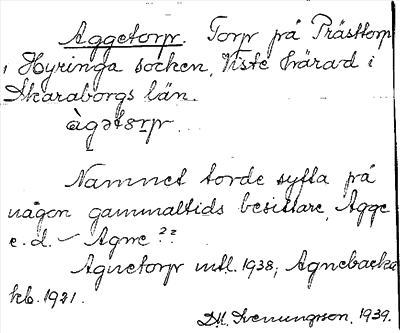 Aggetorp. Torp på Prästtorp
i Hyringa socken, Viste härad i
Skaraborgs län.
àgətɷrp
Namnet torde syfta på
någon gammaltids besittare, Agge
e.d. – Agne??
Agnetorp mtl. 1938; Agnebacka
kb. 1921.
D. H. Svenungsson, 1939.